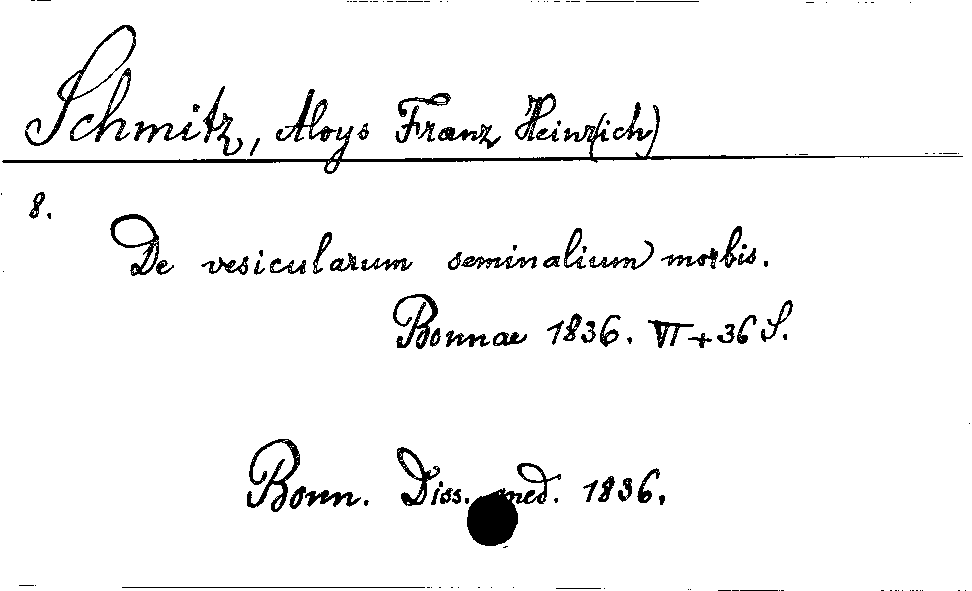 Schmitz, Aloys Franz Heinr(ich)
8.
De vesicularum seminalium morbis.
Bonnae 1836. VI + 36 S.
Bonn. Diss. med. 1836.